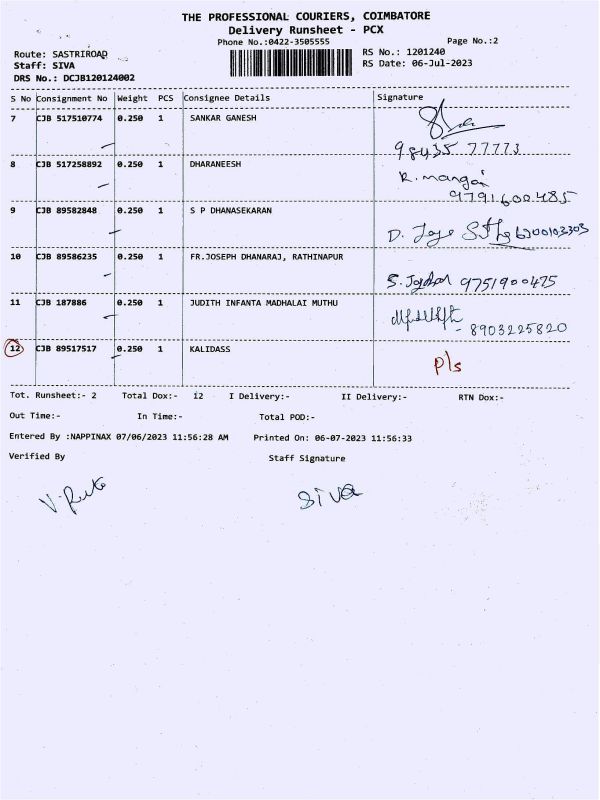 THE PROFESSIONAL COURIERS, COIMBATORE
Delivery Runsheet - PCX
Phone No.:0422-3505555 Page No.:2
Route: SASTRIROAD RS No.: 1201240
Staff: SIVA RS Date: 06-Jul-2023
DRS No.: DCJB120124002
S No Consignment No Weight PCS Consignee Details Signature
7 CJB 517510774 0.250 1 SANKAR GANESH
98435 77773
8 CJB 517258892 0.250 1 DHARANEESH R. mangai
9791600485
9 CJB 89582848 0.250 1 S P DHANASEKARAN
D.
10 CJB 89586235 0.250 1 FR.JOSEPH DHANARAJ, RATHINAPUR
S. 9751900475
11 CJB 187886 0.250 1 JUDITH INFANTA MADHALAI MUTHU
- 8903225820
12 CJB 89517517 0.250 1 KALIDASS
P/s
Tot. Runsheet:- 2 Total Dox:- 12 I Delivery:- II Delivery:- RTN Dox:-
Out Time:- In Time:- Total POD:-
Entered By :NAPPINAX 07/06/2023 11:56:28 AM Printed On: 06-07-2023 11:56:33
Verified By Staff Signature
Siva